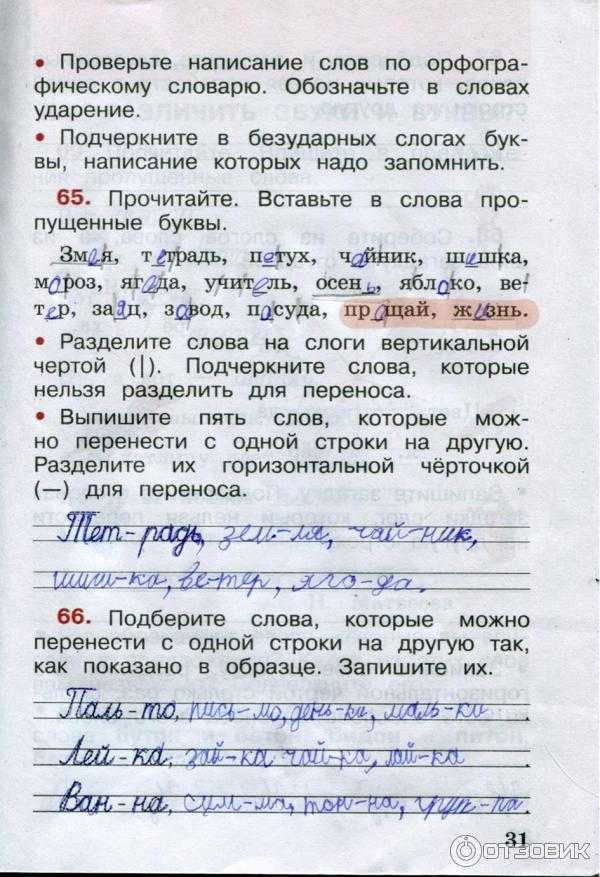 • Проверьте написание слов по орфогра-
фическому словарю. Обозначьте в словах
ударение.
• Подчеркните в безударных слогах бук-
вы, написание которых надо запомнить.
65. Прочитайте. Вставьте в слова про-
пущенные буквы.
Змея, тетрадь, петух, чайник, шишка,
мороз, ягода, учитель, осень, яблоко, ве-
тер, заяц, завод, посуда, прощай, жизнь.
• Разделите слова на слоги вертикальной
чертой (|). Подчеркните слова, которые
нельзя разделить для переноса.
• Выпишите пять слов, которые мож-
но перенести с одной строки на другую.
Разделите их горизонтальной чёрточкой
(—) для переноса.
Тет-радь, зем-ля, чай-ник,
шиш-ка, ве-тер, яго-да.
66. Подберите слова, которые можно
перенести с одной строки на другую так,
как показано в образце. Запишите их.
Паль-то, пись-мо, день-ки, маль-ки
Лей-ка, зай-ка чай-ка, лай-ка
Ван-на, сум-ма, тон-на, груп-па.
31
ОТЗОВИК